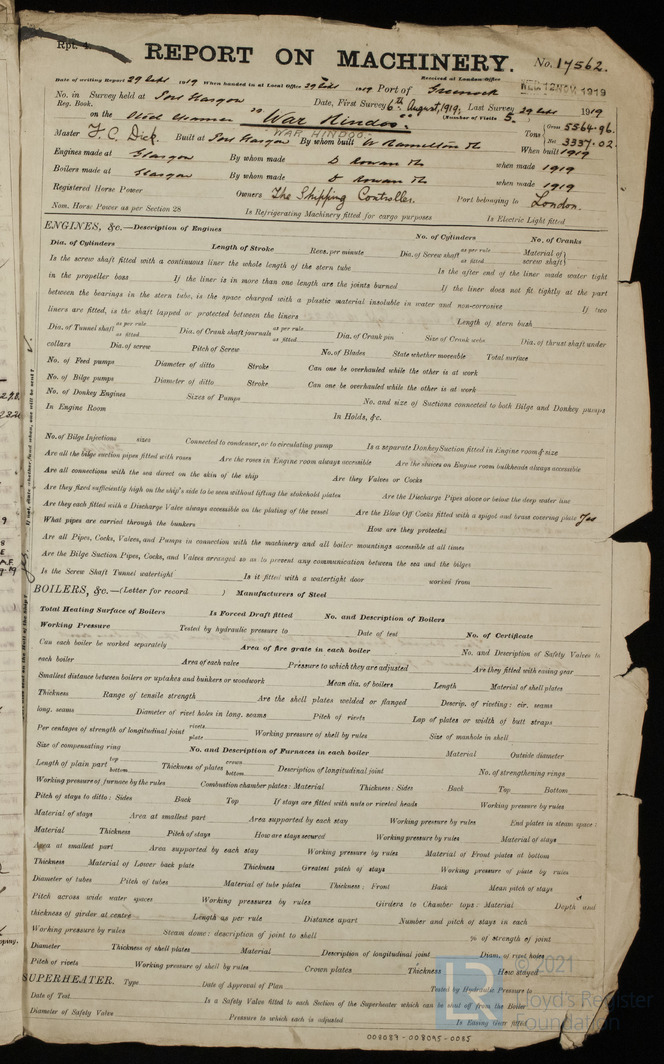 Rpt. 4.
REPORT ON MACHINERY.
No. 17562.
Received at London Office
WED. 12 NOV. 1919
Date of writing Report 29 Sept 1919 When handed in at Local Office 29 Sept 1919 Port of Greenock
No. in Survey held at Port Glasgow Date, First Survey 6th August, 1919, Last Survey 29 Sept 1919
Reg. Book. (Number of Visits 5.
on the Steel Steamer "War Hindoo."
WAR HINDOO
Tons { Gross 5564.96. Net 3337.02.
Master F. C. Dick. Built at Port Glasgow By whom built W Hamilton When built 1919
Engines made at Glasgow By whom made D Rowan when made 1919
Boilers made at Glasgow By whom made D Rowan when made 1919
Registered Horse Power Owners The Shipping Controller. Port belonging to London.
Nom. Horse Power as per Section 28 Is Refrigerating Machinery fitted for cargo purposes Is Electric Light fitted
ENGINES, &c.—Description of Engines No. of Cylinders No. of Cranks
Dia. of Cylinders Length of Stroke Revs. per minute Dia. of Screw shaft as per rule as fitted Material of screw shaft)
Is the screw shaft fitted with a continuous liner the whole length of the stern tube Is the after end of the liner made water tight
in the propeller boss If the liner is in more than one length are the joints burned If the liner does not fit tightly at the part
between the bearings in the stern tube, is the space charged with a plastic material insoluble in water and non-corrosive If two
liners are fitted, is the shaft lapped or protected between the liners Length of stern bush
Dia. of Tunnel shaft as per rule as fitted Dia. of Crank shaft journals as per rule as fitted Dia. of Crank pin Size of Crank webs Dia. of thrust shaft under
collars Dia. of screw Pitch of Screw No. of Blades State whether moveable Total surface
No. of Feed pumps Diameter of ditto Stroke Can one be overhauled while the other is at work
No. of Bilge pumps Diameter of ditto Stroke Can one be overhauled while the other is at work
No. of Donkey Engines Sizes of Pumps No. and size of Suctions connected to both Bilge and Donkey pumps
In Engine Room In Holds, &c.
No. of Bilge Injections sizes Connected to condenser, or to circulating pump Is a separate Donkey Suction fitted in Engine room & size
Are all the bilge suction pipes fitted with roses Are the roses in Engine room always accessible Are the sluices on Engine room bulkheads always accessible
Are all connections with the sea direct on the skin of the ship Are they Valves or Cocks
Are they fixed sufficiently high on the ship's side to be seen without lifting the stokehold plates Are the Discharge Pipes above or below the deep water line
Are they each fitted with a Discharge Valve always accessible on the plating of the vessel Are the Blow Off Cocks fitted with a spigot and brass covering plate Yes
What pipes are carried through the bunkers How are they protected
Are all Pipes, Cocks, Valves, and Pumps in connection with the machinery and all boiler mountings accessible at all times
Are the Bilge Suction Pipes, Cocks, and Valves arranged so as to prevent any communication between the sea and the bilges
Is the Screw Shaft Tunnel watertight Is it fitted with a watertight door worked from
BOILERS, &c.—(Letter for record ) Manufacturers of Steel
Total Heating Surface of Boilers Is Forced Draft fitted No. and Description of Boilers
Working Pressure Tested by hydraulic pressure to Date of test No. of Certificate
Can each boiler be worked separately Area of fire grate in each boiler No. and Description of Safety Valves to
each boiler Area of each valve Pressure to which they are adjusted Are they fitted with easing gear
Smallest distance between boilers or uptakes and bunkers or woodwork Mean dia. of boilers Length Material of shell plates
Thickness Range of tensile strength Are the shell plates welded or flanged Descrip. of riveting: cir. seams
long. seams Diameter of rivet holes in long. seams Pitch of rivets Lap of plates or width of butt straps
Per centages of strength of longitudinal joint rivets plate Working pressure of shell by rules Size of manhole in shell
Size of compensating ring No. and Description of Furnaces in each boiler Material Outside diameter
Length of plain part top bottom Thickness of plates crown bottom Description of longitudinal joint No. of strengthening rings
Working pressure of furnace by the rules Combustion chamber plates: Material Thickness: Sides Back Top Bottom
Pitch of stays to ditto: Sides Back Top If stays are fitted with nuts or riveted heads Working pressure by rules
Material of stays Area at smallest part Area supported by each stay Working pressure by rules End plates in steam space:
Material Thickness Pitch of stays How are stays secured Working pressure by rules Material of stays
Area at smallest part Area supported by each stay Working pressure by rules Material of Front plates at bottom
Thickness Material of Lower back plate Thickness Greatest pitch of stays Working pressure of plate by rules
Diameter of tubes Pitch of tubes Material of tube plates Thickness: Front Back Mean pitch of stays
Pitch across wide water spaces Working pressures by rules Girders to Chamber tops: Material Depth and
thickness of girder at centre Length as per rule Distance apart Number and pitch of stays in each
Working pressure by rules Steam dome: description of joint to shell % of strength of joint
Diameter Thickness of shell plates Material Description of longitudinal joint Diam. of rivet holes
Pitch of rivets Working pressure of shell by rules Crown plates Thickness How stayed
SUPERHEATER. Type Date of Approval of Plan Tested by Hydraulic Pressure to
Date of Test Is a Safety Valve fitted to each Section of the Superheater which can be shut off from the Boiler
Diameter of Safety Valve Pressure to which each is adjusted Is Easing Gear fitted
© 2021
Lloyd's Register
Foundation
008089-008095-0085